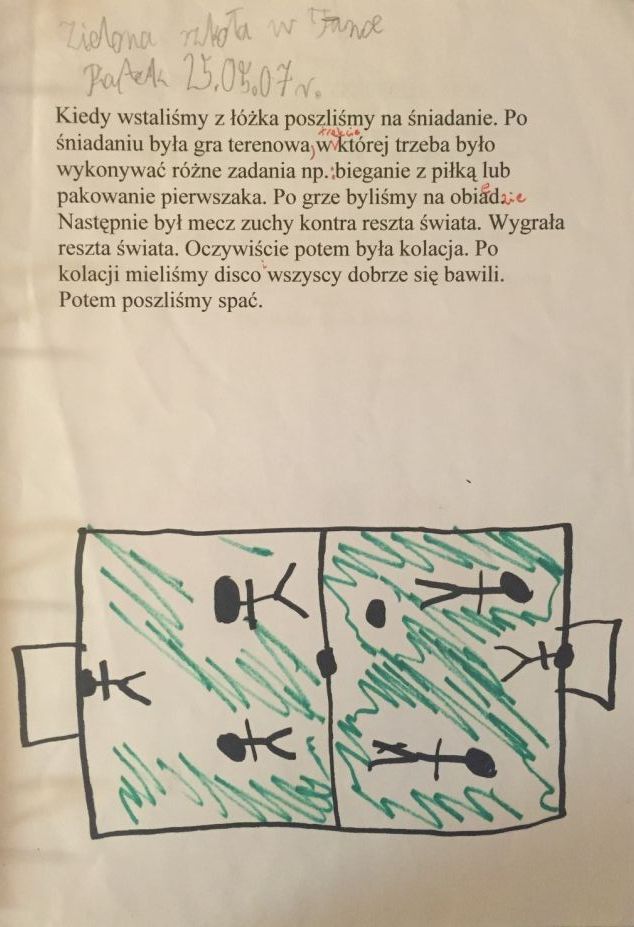 Zielona szkoła w Fance
Piątek 25.05.07 r.
Kiedy wstaliśmy z łóżka poszliśmy na śniadanie. Po
trakcie
śniadaniu była gra terenowa, w której trzeba było
wykonywać różne zadania np.: bieganie z piłką lub
pakowanie pierwszaka. Po grze byliśmy na obiedzie
Następnie był mecz zuchy kontra reszta świata. Wygrała
reszta świata. Oczywiście potem była kolacja. Po
kolacji mieliśmy disco wszyscy dobrze się bawili.
Potem poszliśmy spać.